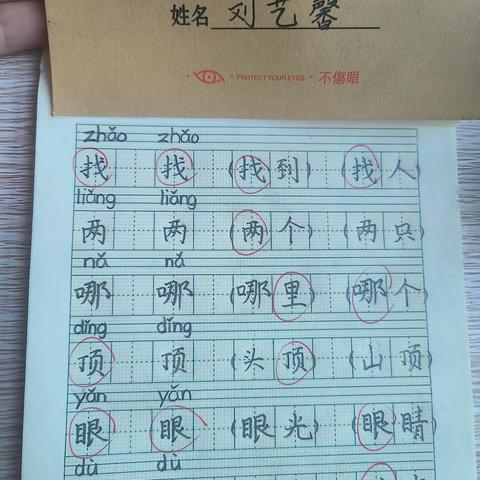 姓名 刘艺馨
PROTECT YOUR EYES · 不傷眼
zhǎo zhǎo
找 找 (找到) (找人)
liǎng liǎng
两 两 (两个) (两只)
nǎ nǎ
哪 哪 (哪里) (哪个)
dǐng dǐng
顶 顶 (头顶) (山顶)
yǎn yǎn
眼 眼 (眼光) (眼睛)
dù dù